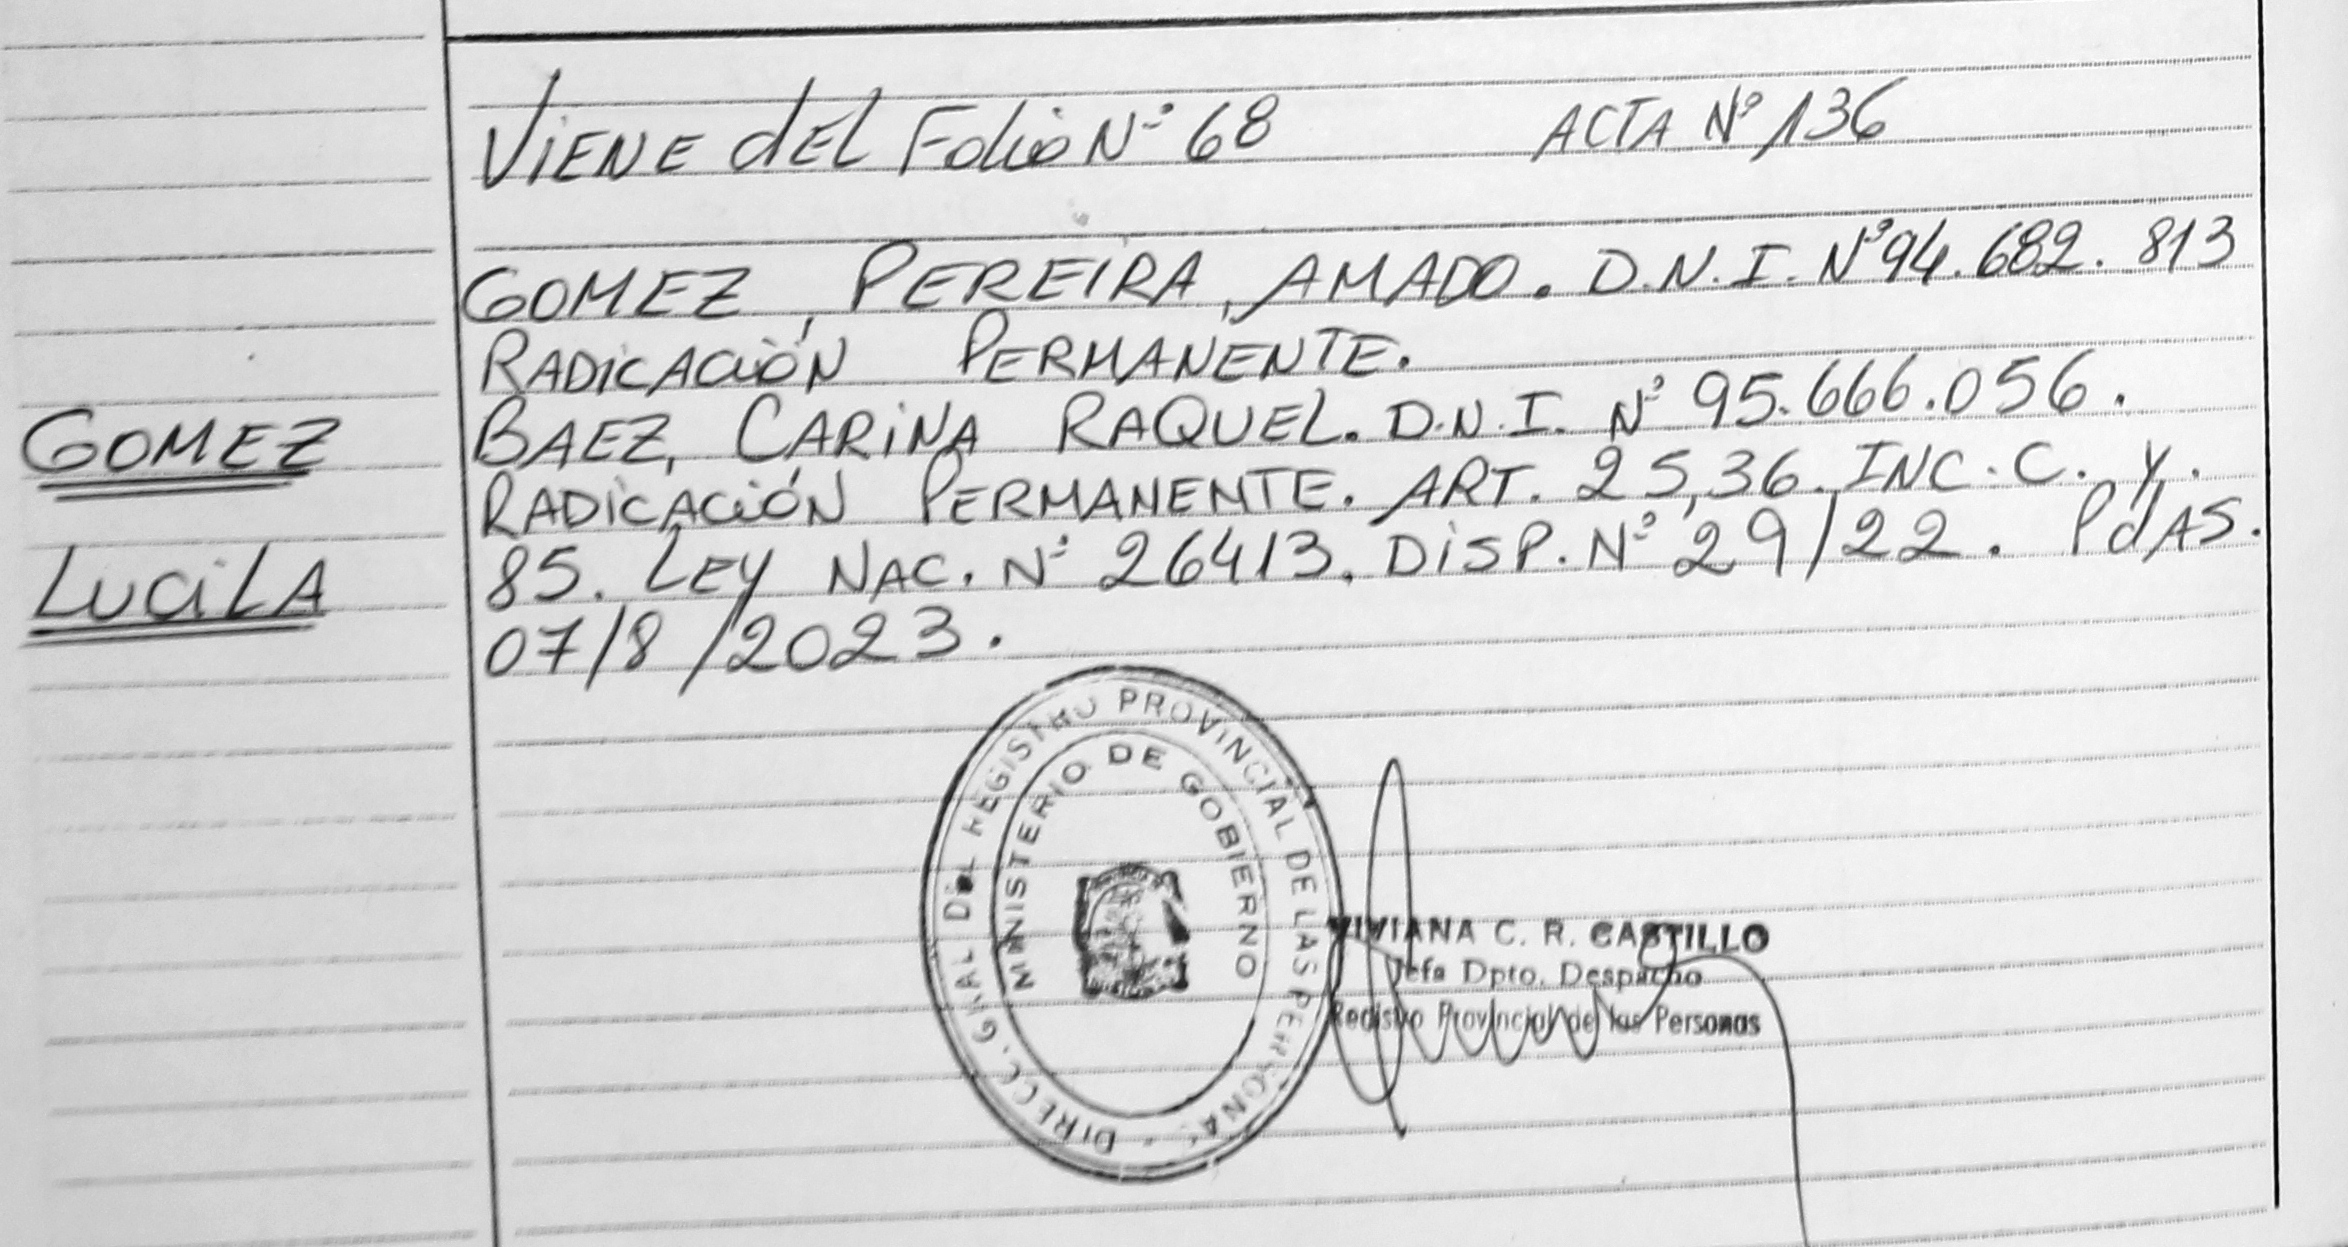 VIENE dEL Folio Nº 68 ACTA Nº 136
GOMEZ, PEREIRA, AMADO. D.N.I. Nº 94.682.813
RADICACIÓN PERMANENTE.
BAEZ, CARINA RAQUEL. D.N.I. Nº 95.666.056.
RADICACIÓN PERMANENTE. ART. 25,36. INC. C. Y.
85. LEY NAC. Nº 26413. DISP. Nº 29/22. PdAS.
07/8/2023.
GOMEZ
LUCILA
DIRECC. GRAL DEL REGISTRO PROVINCIAL DE LAS PERSONAS
MINISTERIO DE GOBIERNO
VIVIANA C. R. CASTILLO
Jefa Dpto. Despacho
Registro Provincial de las Personas